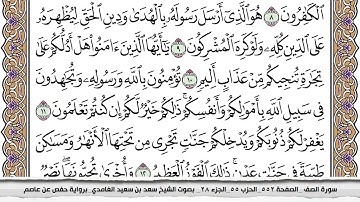 ٱلۡكَٰفِرُونَ ٨ هُوَ ٱلَّذِيٓ أَرۡسَلَ رَسُولَهُۥ بِٱلۡهُدَىٰ وَدِينِ ٱلۡحَقِّ لِيُظۡهِرَهُۥ
عَلَى ٱلدِّينِ كُلِّهِۦ وَلَوۡ كَرِهَ ٱلۡمُشۡرِكُونَ ٩ يَٰٓأَيُّهَا ٱلَّذِينَ ءَامَنُواْ هَلۡ أَدُلُّكُمۡ عَلَىٰ
تِجَٰرَةٖ تُنجِيكُم مِّنۡ عَذَابٍ أَلِيمٖ ١٠ تُؤۡمِنُونَ بِٱللَّهِ وَرَسُولِهِۦ وَتُجَٰهِدُونَ
فِي سَبِيلِ ٱللَّهِ بِأَمۡوَٰلِكُمۡ وَأَنفُسِكُمۡۚ ذَٰلِكُمۡ خَيۡرٞ لَّكُمۡ إِن كُنتُمۡ تَعۡلَمُونَ ١١
يَغۡفِرۡ لَكُمۡ ذُنُوبَكُمۡ وَيُدۡخِلۡكُمۡ جَنَّٰتٖ تَجۡرِي مِن تَحۡتِهَا ٱلۡأَنۡهَٰرُ وَمَسَٰكِنَ
طَيِّبَةٗ فِي جَنَّٰتِ عَدۡنٖۚ ذَٰلِكَ ٱلۡفَوۡزُ ٱلۡعَظِيمُ ١٢ وَأُخۡرَىٰ تُحِبُّونَهَاۖ نَصۡرٞ
سورة الصف _ الصفحة ٥٥٢ _ الحزب ٥٥ _ الجزء ٢٨ _ بصوت الشيخ سعد بن سعيد الغامدي _ برواية حفص عن عاصم